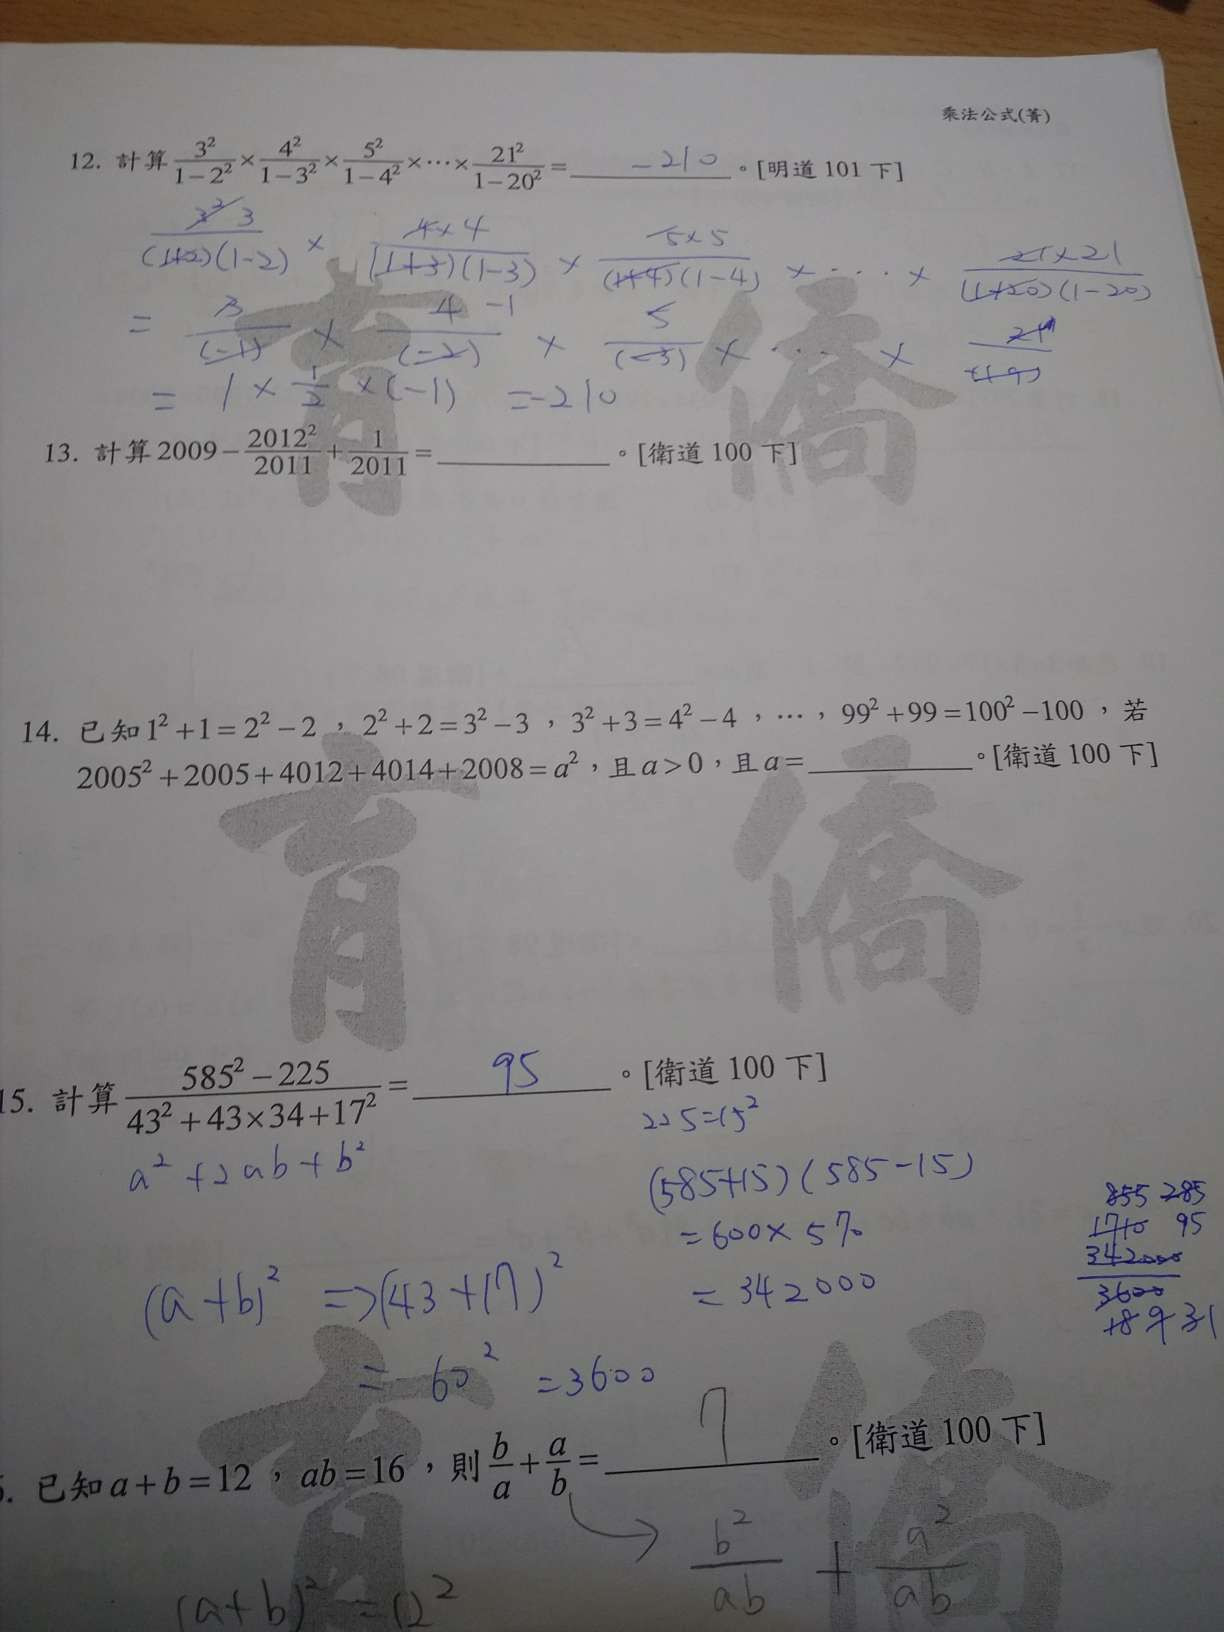 乘法公式(菁)
12. 計算 3²/(1-2²) × 4²/(1-3²) × 5²/(1-4²) × ⋯ × 21²/(1-20²) = -210 。[明道 101 下]
3² 3/(1+2)(1-2) × 4×4/(1+3)(1-3) × 5×5/(1+4)(1-4) × ⋯ × 21×21/(1+20)(1-20)
= 3/(-1) × 4/(-2) -1 × 5/(-3) × ⋯ ×
= 1 × 1/2 × (-1) = -210
13. 計算 2009 - 2012²/2011 + 1/2011 = ________ 。[衛道 100 下]
14. 已知 1²+1=2²-2 , 2²+2=3²-3 , 3²+3=4²-4 , ⋯ , 99²+99=100²-100 , 若
2005²+2005+4012+4014+2008=a² , 且 a>0 , 且 a= ________ 。[衛道 100 下]
15. 計算 (585²-225)/(43²+43×34+17²) = 95 。[衛道 100 下]
225=15²
a²+2ab+b²
(585+15)(585-15)
=600×570
=342000
855 285
1710 95
342000
3600
(a+b)² ⇒(43+17)²
= 60² =3600
. 已知 a+b=12 , ab=16 , 則 b/a + a/b = 7 。[衛道 100 下]
b²/ab + a²/ab
(a+b)² = 12²
育僑
育僑
育僑